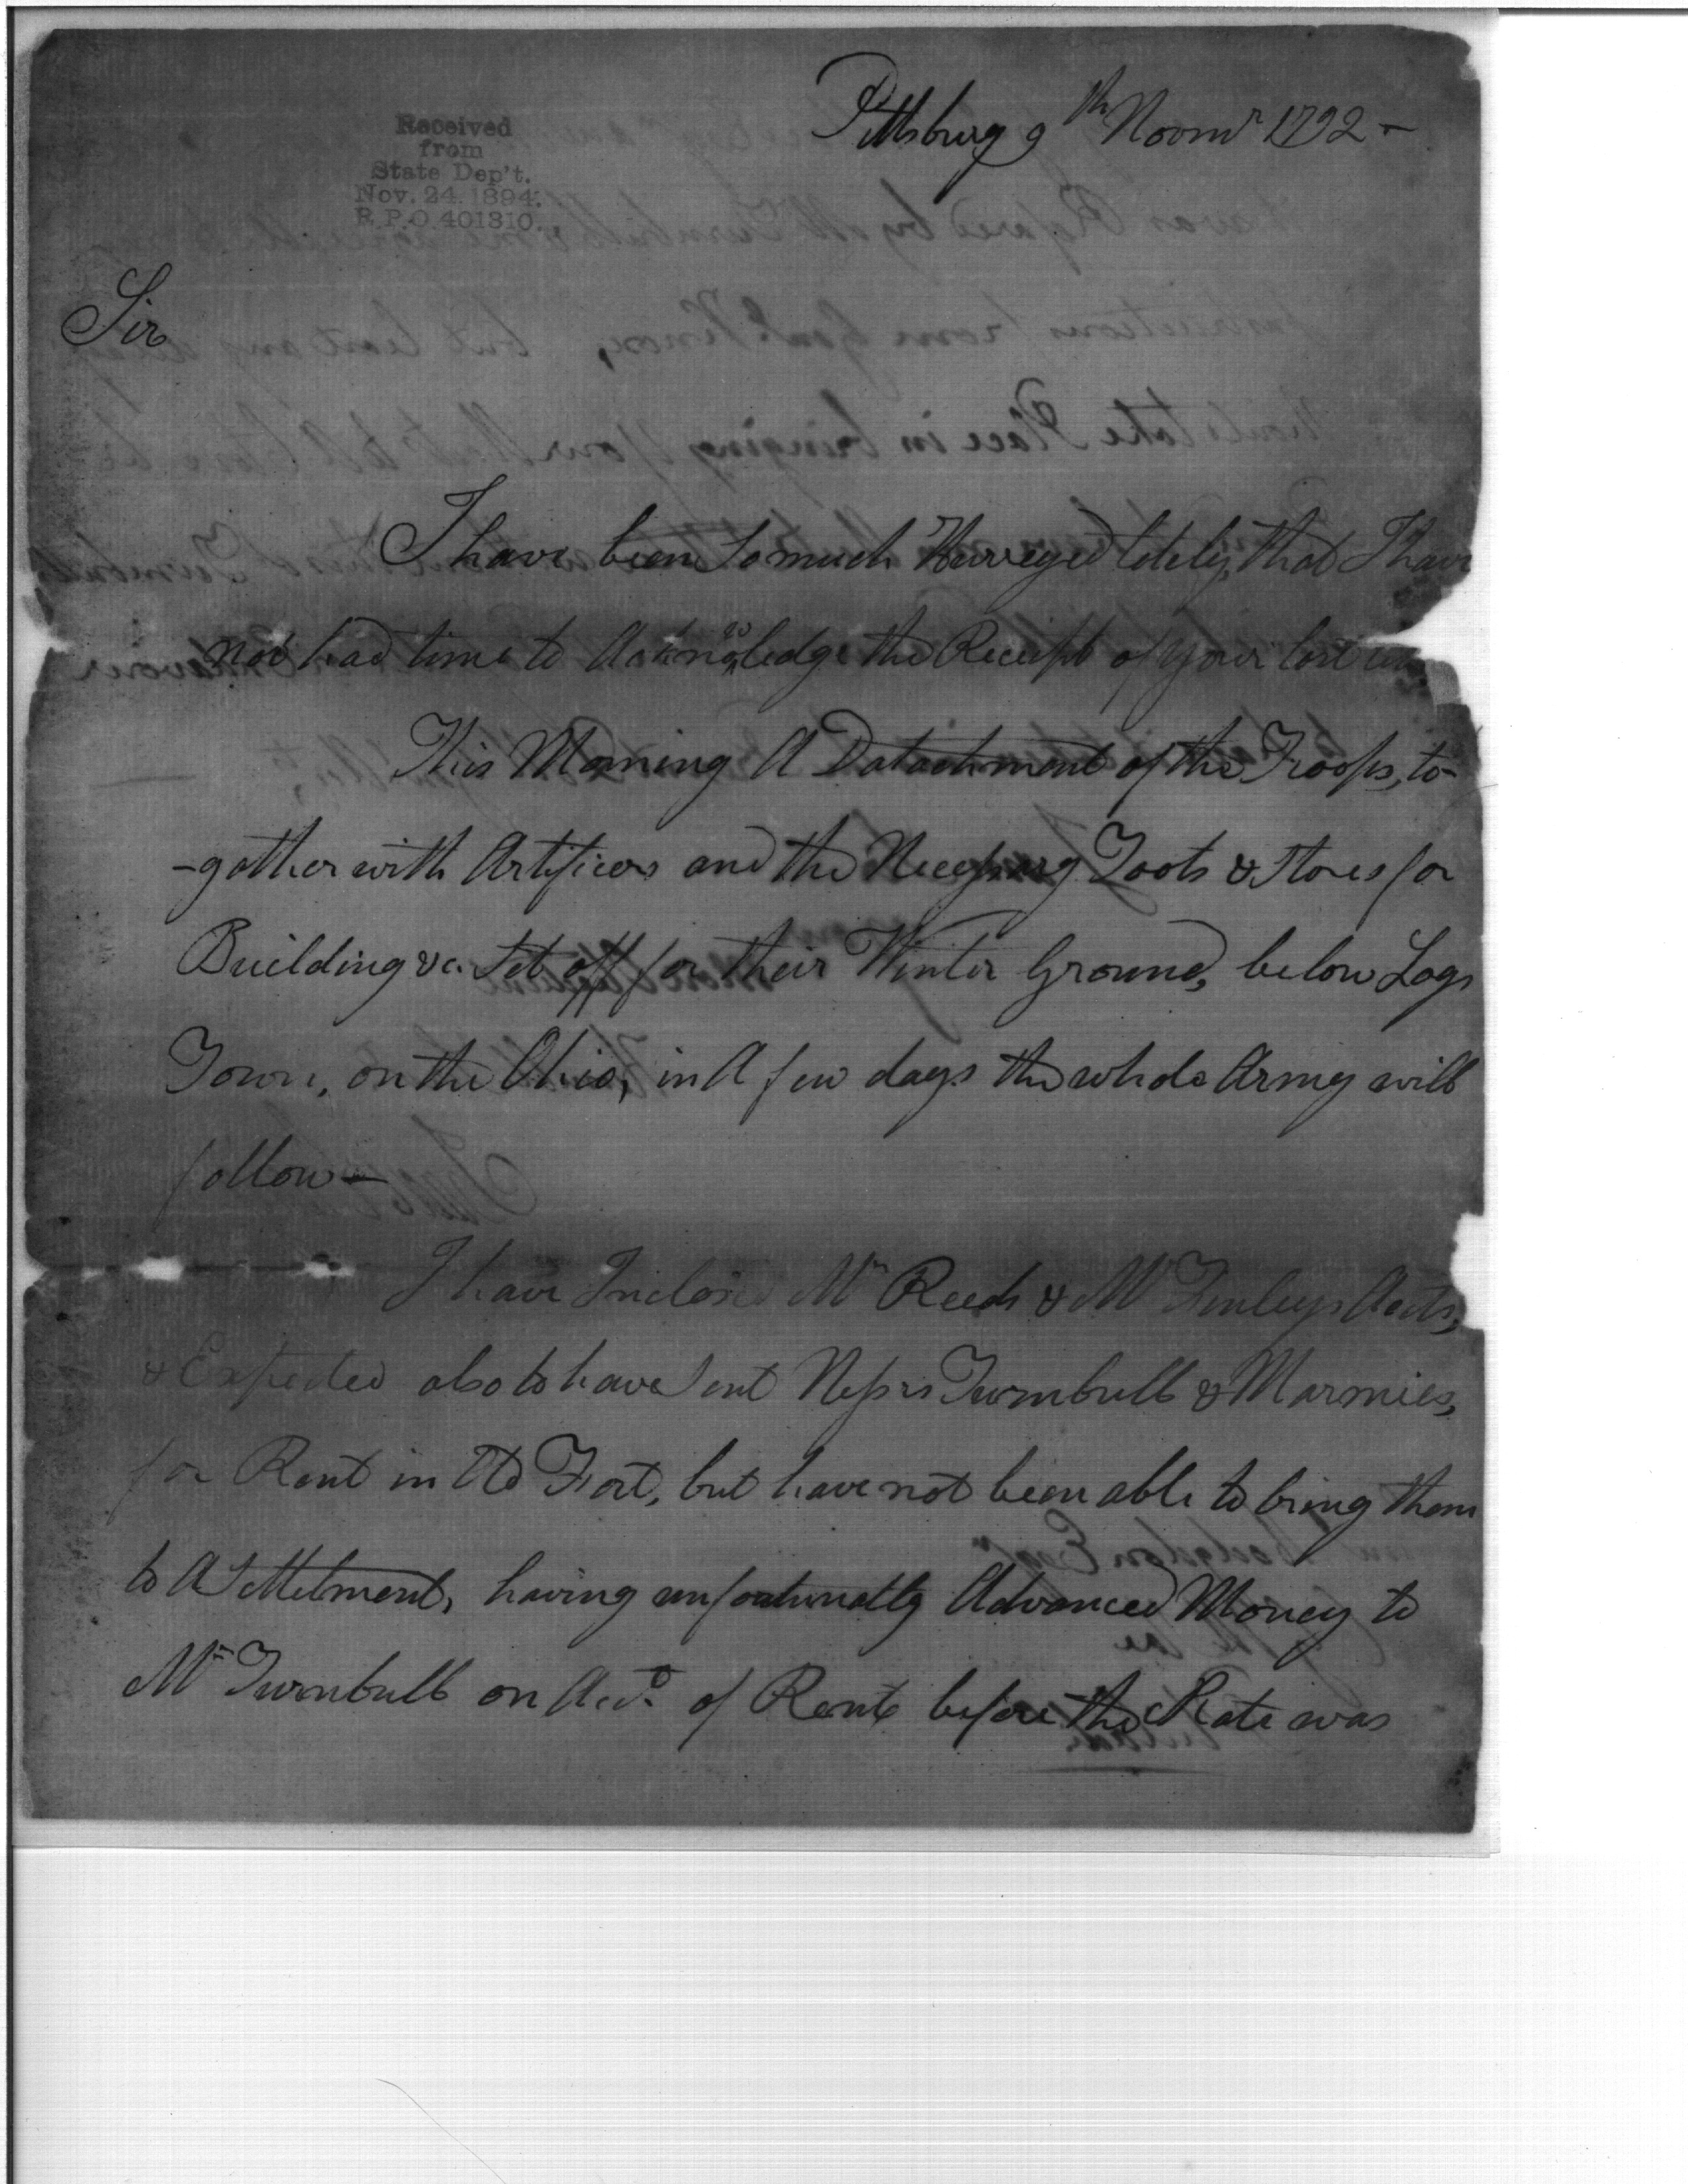 Pittsburg 9th Novmr 1792 -
Received
from
State Dep't.
Nov. 24. 1894.
R.P.O 401310.
Sir
I have been So much Hurreyed lately, that I have
not had time to Acknowledge the Receipt of your last
This Morning A Datachment of the Troops, to-
-gather with Artificers and the Necessary Tools & Stores for
Building &c. Set off for their Winter Ground, below Logs
Town, on the Ohio, in A few days the whole Army will
follow -
I have Inclosed Mr Reeds & Mr Finleys Accts,
& Expected also to have Sent Messrs Turnbull & Marmies,
for Rent in Old Fort, but have not been able to bring them
to A Settelment, having unfortunatly Advanced Money to
Mr Turnbull on Acct. of Rent before the Rate was